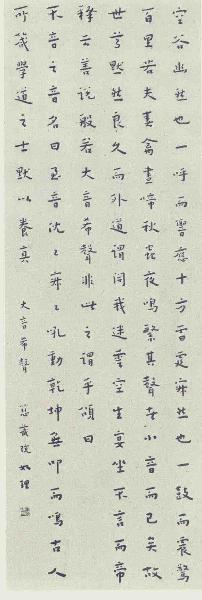 空谷幽然也一呼而響應十方雷霆寂然也一鼓而震驚
百里若夫春禽晝啼秋虫夜鳴繫其聲者小音而已矣故
世尊默然良久而外道謂開我迷雲空生宴坐不言而帝
釋云善說般若大音希聲非此之謂乎頌曰
不音之音名曰至音沈沈寂寂吼動乾坤無叩而鳴古人
所箴學道之士默以養真 大音希聲